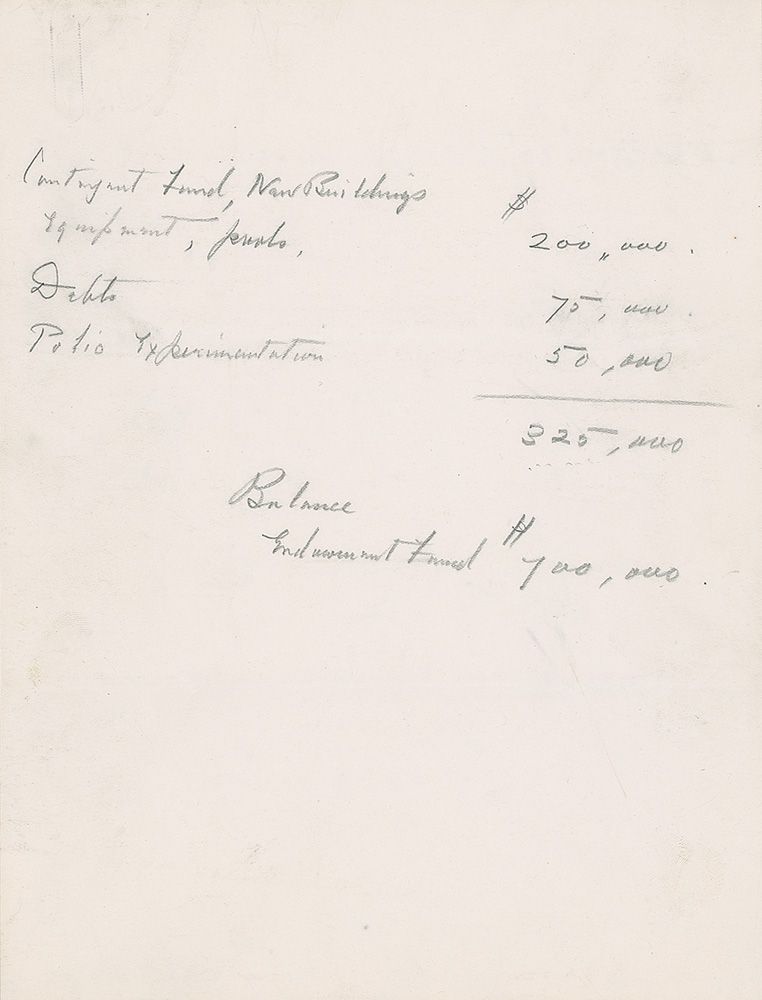 Contingent Fund, New Buildings $
Equipment, pools, 200,,000.
Debts 75,000.
Polio Experimentation 50,000
325,000
Balance
Endowment Fund $ 700,000